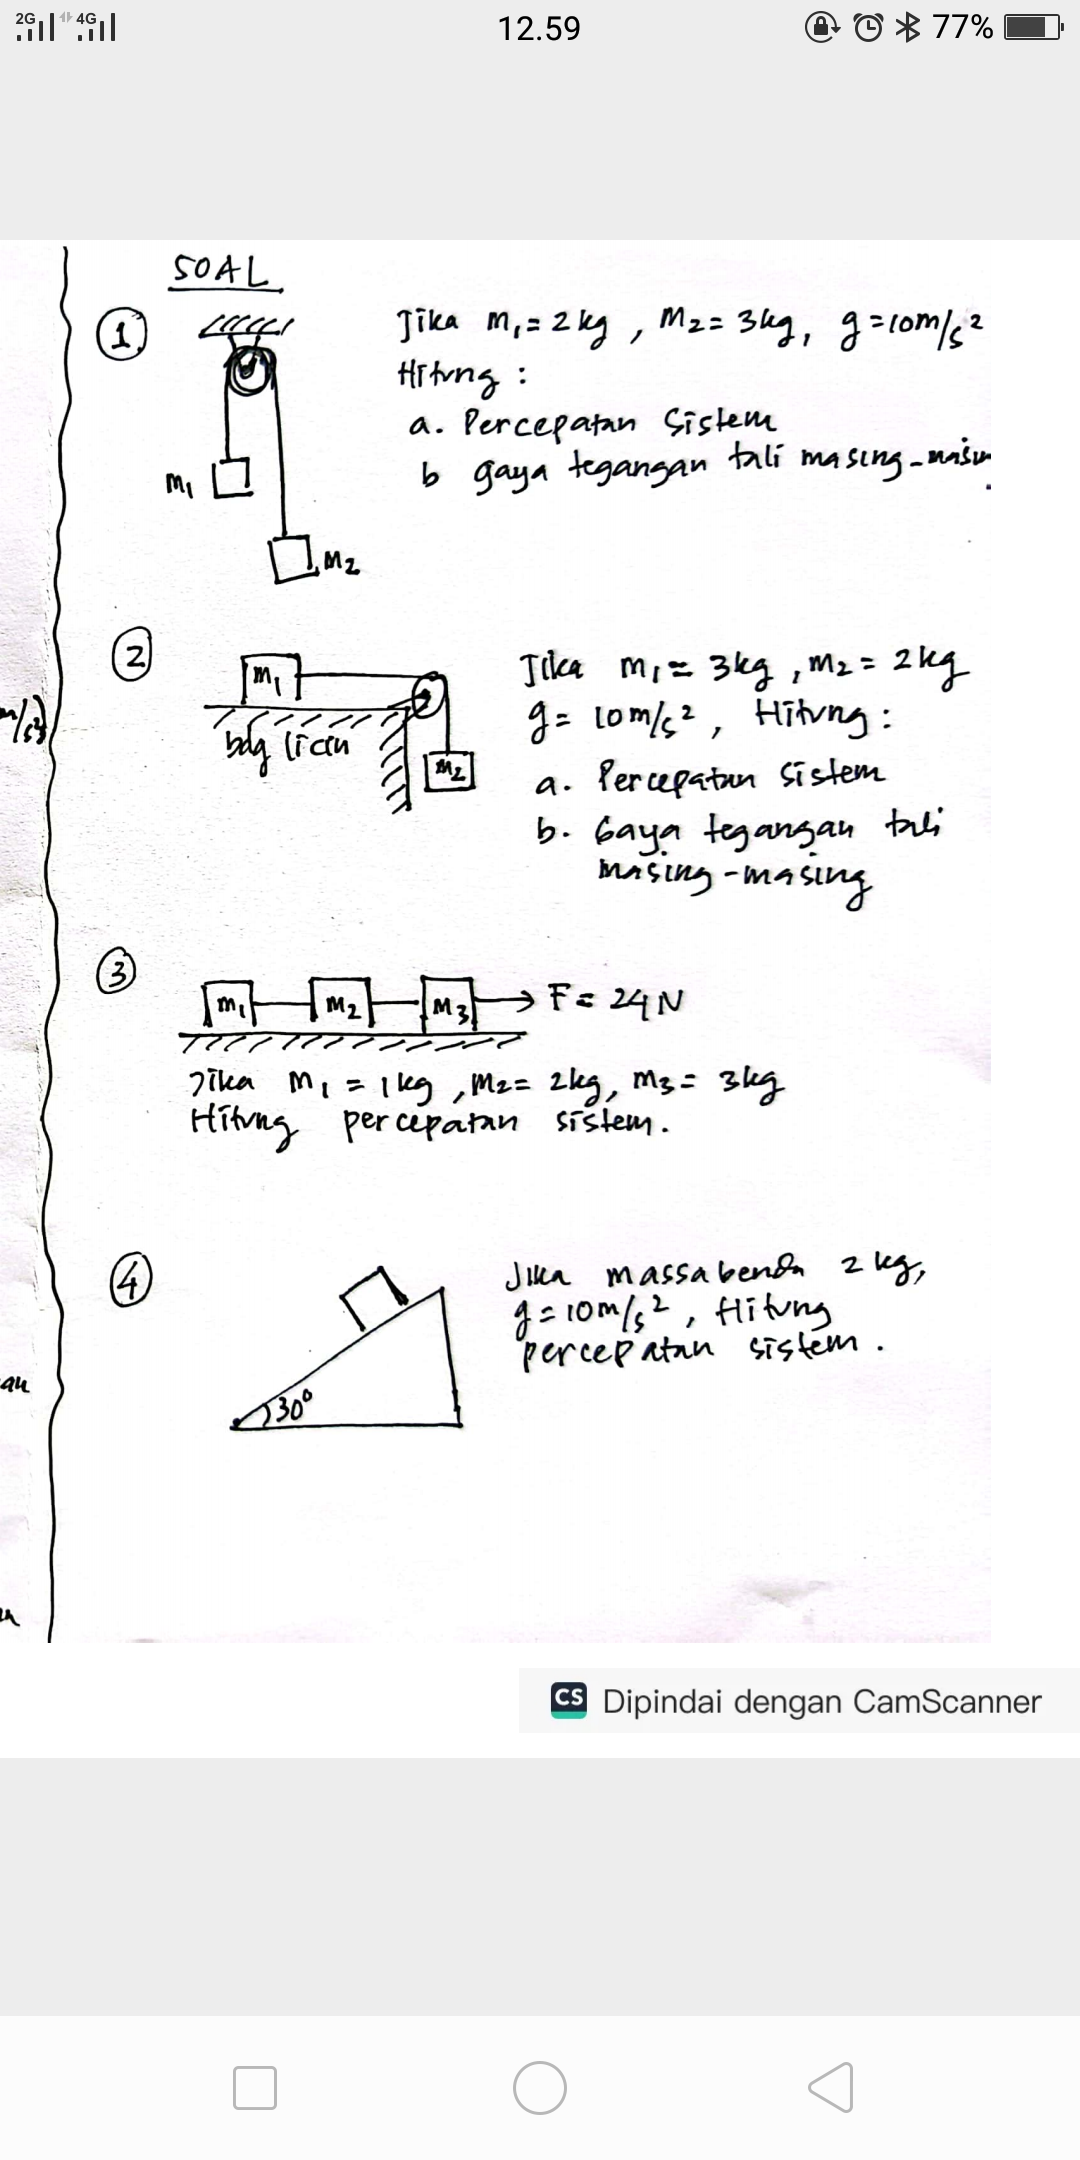 2G 4G 12.59 77%
SOAL
1. Jika m₁ = 2 kg, m₂ = 3 kg, g = 10 m/s²
Hitung :
a. Percepatan Sistem
b gaya tegangan tali masing-masin
m₁
m₂
2 Jika m₁ = 3 kg, m₂ = 2 kg
g = 10 m/s², Hitung :
a. Percepatan sistem
b. Gaya tegangan tali
masing-masing
m₁
bdg licin
m₂
m/s²)
3
m₁ m₂ m₃ F = 24 N
Jika m₁ = 1 kg, m₂ = 2 kg, m₃ = 3 kg
Hitung percepatan sistem.
4 Jika massa benda 2 kg,
g = 10 m/s², Hitung
percepatan sistem.
30°
an
CS Dipindai dengan CamScanner